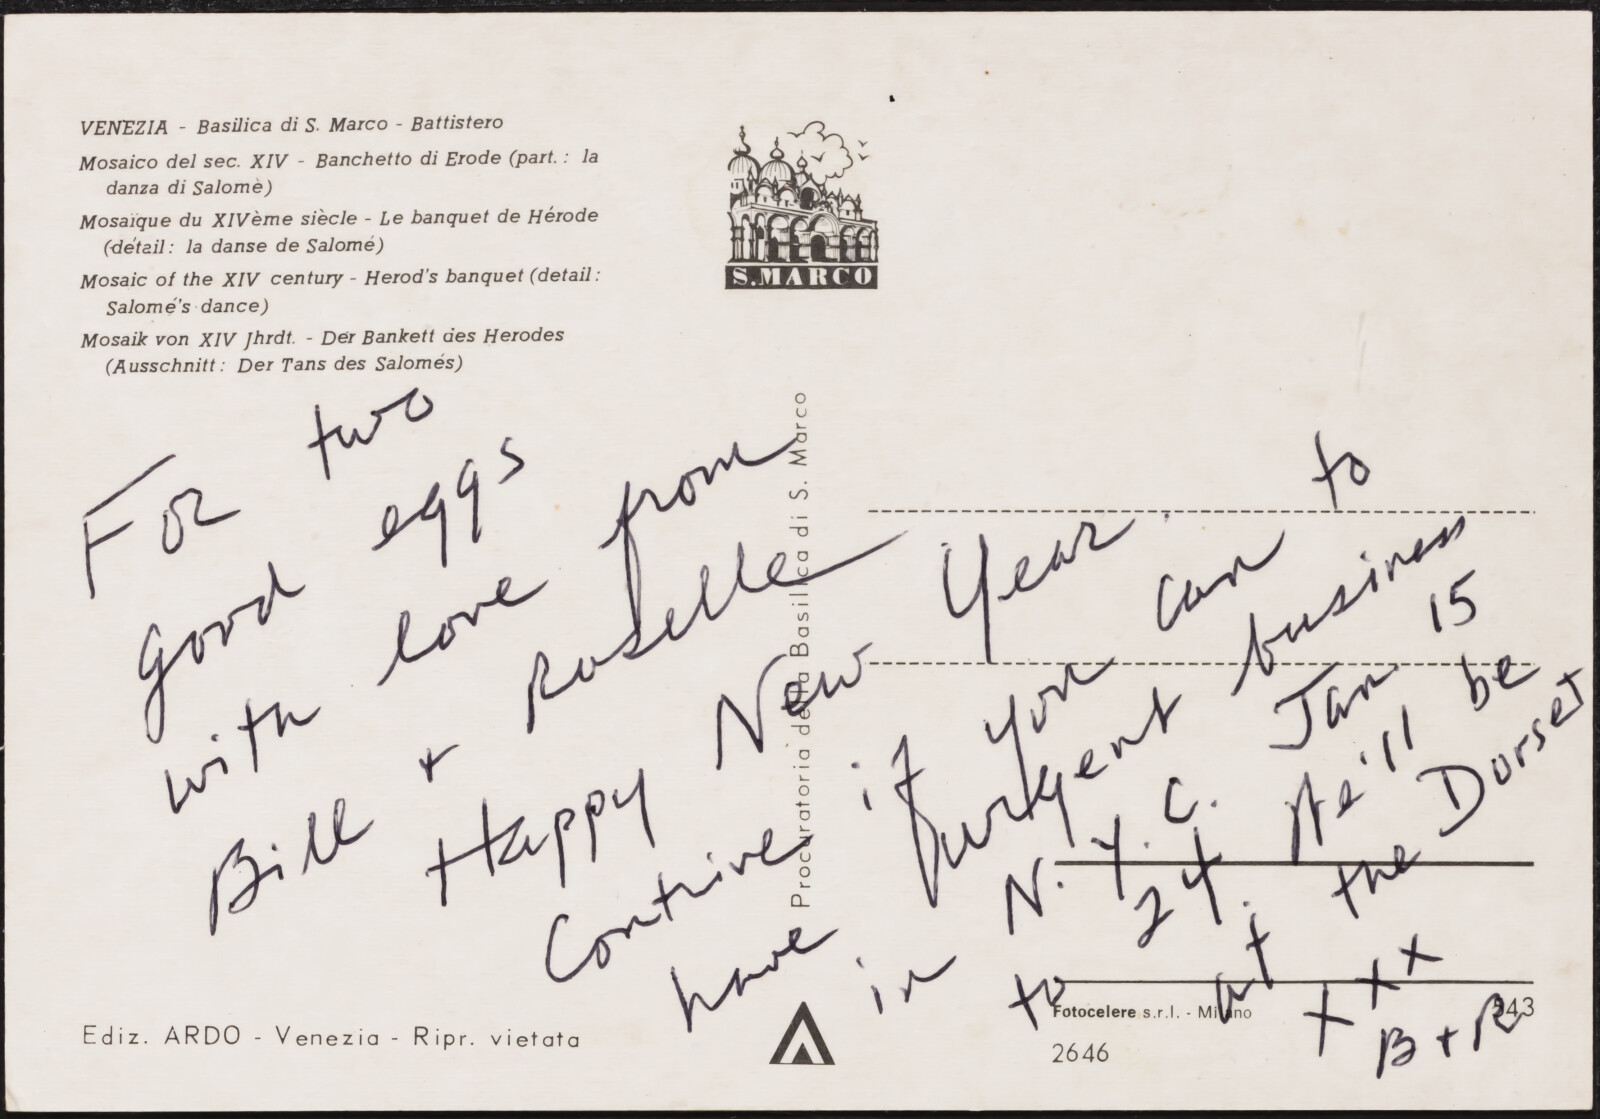 VENEZIA - Basilica di S. Marco - Battistero
Mosaico del sec. XIV - Banchetto di Erode (part.: la
danza di Salomè)
Mosaïque du XIVème siècle - Le banquet de Hérode
(détail: la danse de Salomé)
Mosaic of the XIV century - Herod's banquet (detail:
Salomé's dance)
Mosaik von XIV Jhrdt. - Der Bankett des Herodes
(Ausschnitt: Der Tans des Salomés)
S.MARCO
For two
good eggs
with love from
Bill + Roselle
Happy New Year.
Contrive if you can to
have urgent business
in N.Y.C. Jan 15
to 24. We'll be
at the Dorset
x x x
B + R
Procuratoria della Basilica di S. Marco
Ediz. ARDO - Venezia - Ripr. vietata
Fotocelere s.r.l. - Milano
543
2646